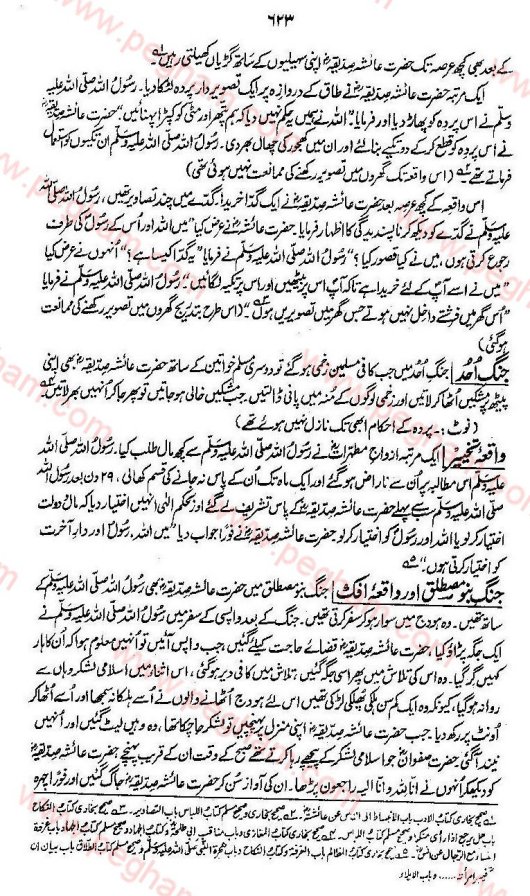 ۶۲۳
کے بعد بھی کچھ عرصہ تک حضرت عائشہ صدیقہؓ اپنی سہیلیوں کے ساتھ گڑیاں کھیلتی رہیں
ایک مرتبہ حضرت عائشہ صدیقہؓ نے طاق کے دروازہ پر ایک تصویر دار پردہ لٹکا دیا۔ رسول اللہ صلی اللہ علیہ
وسلم نے اس پردہ کو پھاڑ دیا اور فرمایا "اللہ نے ہمیں یہ حکم نہیں دیا کہ ہم پتھر اور مٹی کو کپڑا پہنائیں" حضرت عائشہ صدیقہؓ
نے اس پردہ کو قطع کر کے دو تکیے بنا لئے اور ان میں کھجور کی چھال بھر دی۔ رسول اللہ صلی اللہ علیہ وسلم ان تکیوں کو استعمال
فرماتے تھے (اس واقعہ تک گھروں میں تصویر رکھنے کی ممانعت نہیں ہوئی تھی)
اس واقعہ کے کچھ عرصہ بعد حضرت عائشہ صدیقہؓ نے ایک گدّا خریدا۔ گدّے میں چند تصاویر تھیں، رسول اللہ صلی اللہ
علیہ وسلم نے گدّے کو دیکھ کر ناپسندیدگی کا اظہار فرمایا۔ حضرت عائشہؓ نے عرض کیا "میں اللہ اور اُس کے رسولؐ کی طرف
رجوع کرتی ہوں، میں نے کیا قصور کیا؟" رسول اللہ صلی اللہ علیہ وسلم نے فرمایا "یہ گدّا کیسا ہے؟" اُنہوں نے عرض کیا
"میں نے اسے آپ کے لئے خریدا ہے تاکہ آپ اس پر بیٹھیں اور اس پر تکیہ لگائیں"۔ رسول اللہ صلی اللہ علیہ وسلم نے فرمایا
"اُس گھر میں فرشتے داخل نہیں ہوتے جس گھر میں تصویریں ہوں" (اس طرح بتدریج گھروں میں تصویر رکھنے کی ممانعت
ہو گئی)
جنگ اُحد جنگ اُحد میں جب کافی مسلمین زخمی ہو گئے تو دوسری مسلم خواتین کے ساتھ حضرت عائشہ صدیقہؓ بھی اپنی
پیٹھ پر مشکیں اُٹھا کر لاتیں اور زخمی لوگوں کے منہ میں پانی ڈالتیں۔ جب مشکیں خالی ہو جاتیں تو پھر جا کر اُنہیں بھر لاتیں
(نوٹ :- پردہ کے احکام ابھی تک نازل نہیں ہوئے تھے)
واقعہ تخییر ایک مرتبہ ازواجِ مطہراتؓ نے رسول اللہ صلی اللہ علیہ وسلم سے کچھ مال طلب کیا۔ رسول اللہ صلی اللہ
علیہ وسلم اس مطالبہ پر اُن سے ناراض ہو گئے اور ایک ماہ تک اُن کے پاس نہ جانے کی قسم کھا لی، ۲۹ دن بعد رسول اللہ
صلی اللہ علیہ وسلم سب سے پہلے حضرت عائشہ صدیقہؓ کے پاس تشریف لے گئے اور بحکم الٰہی انہیں اختیار دیا کہ مال و دولت
اختیار کر لو یا اللہ اور رسولؐ کو اختیار کر لو۔ حضرت عائشہ صدیقہؓ نے فوراً جواب دیا "میں اللہ، رسولؐ اور دارِ آخرت
کو اختیار کرتی ہوں"
جنگ بنو مصطلق اور واقعہ افک جنگ بنو مصطلق میں حضرت عائشہ صدیقہؓ بھی رسول اللہ صلی اللہ علیہ وسلم کے
ساتھ تھیں۔ وہ ہودج میں سوار ہو کر سفر کرتی تھیں۔ جنگ کے بعد واپسی کے سفر میں رسول اللہ صلی اللہ علیہ وسلم نے
ایک جگہ پڑاؤ کیا، حضرت عائشہ صدیقہؓ قضائے حاجت کیلئے گئیں، جب واپس آئیں تو اُنہیں معلوم ہوا کہ اُن کا ہار
کہیں گر گیا۔ وہ اس کی تلاش میں پھر اسی جگہ گئیں، تلاش میں کافی دیر ہو گئی، اس اثناء میں اسلامی لشکر وہاں سے
روانہ ہو گیا، کیونکہ وہ ایک کم سن ہلکی پھلکی لڑکی تھیں اس لئے ہودج اُٹھانے والوں نے اُسے ہلکا نہ سمجھا اور اُسے اُٹھا کر
اونٹ پر رکھ دیا۔ جب حضرت عائشہ صدیقہؓ اپنی منزل پر پہنچیں تو لشکر جا چکا تھا، وہ وہیں لیٹ گئیں اور اُنہیں
نیند آ گئی۔ حضرت صفوانؓ جو اسلامی لشکر کے پیچھے رہا کرتے تھے صبح کے وقت ان کے قریب پہنچے حضرت عائشہ صدیقہؓ
کو دیکھ کر اُنہوں نے انا للہ و انا الیہ راجعون پڑھا۔ ان کی آواز سن کر حضرت عائشہ صدیقہؓ جاگ گئیں اور فوراً چہرہ
صحیح بخاری کتاب الادب باب الانبساط الی الناس عن عائشۃؓ۔ صحیح بخاری و صحیح مسلم کتاب اللباس باب التصاویر۔ صحیح بخاری کتاب النکاح
باب ھل یرجع اذا رأی منکرا و صحیح مسلم کتاب اللباس۔ صحیح بخاری کتاب المغازی و باب مناقب ابی طلحۃؓ و کتاب الجہاد و صحیح مسلم کتاب الجہاد باب غزوۃ
النساء مع الرجال عن انسؓ۔ صحیح بخاری کتاب المظالم باب الغرفۃ و کتاب النکاح و باب ہجرۃ النبی صلی اللہ علیہ وسلم و صحیح مسلم کتاب الطلاق باب بیان ان
و باب الایلاء
www.pegham.com